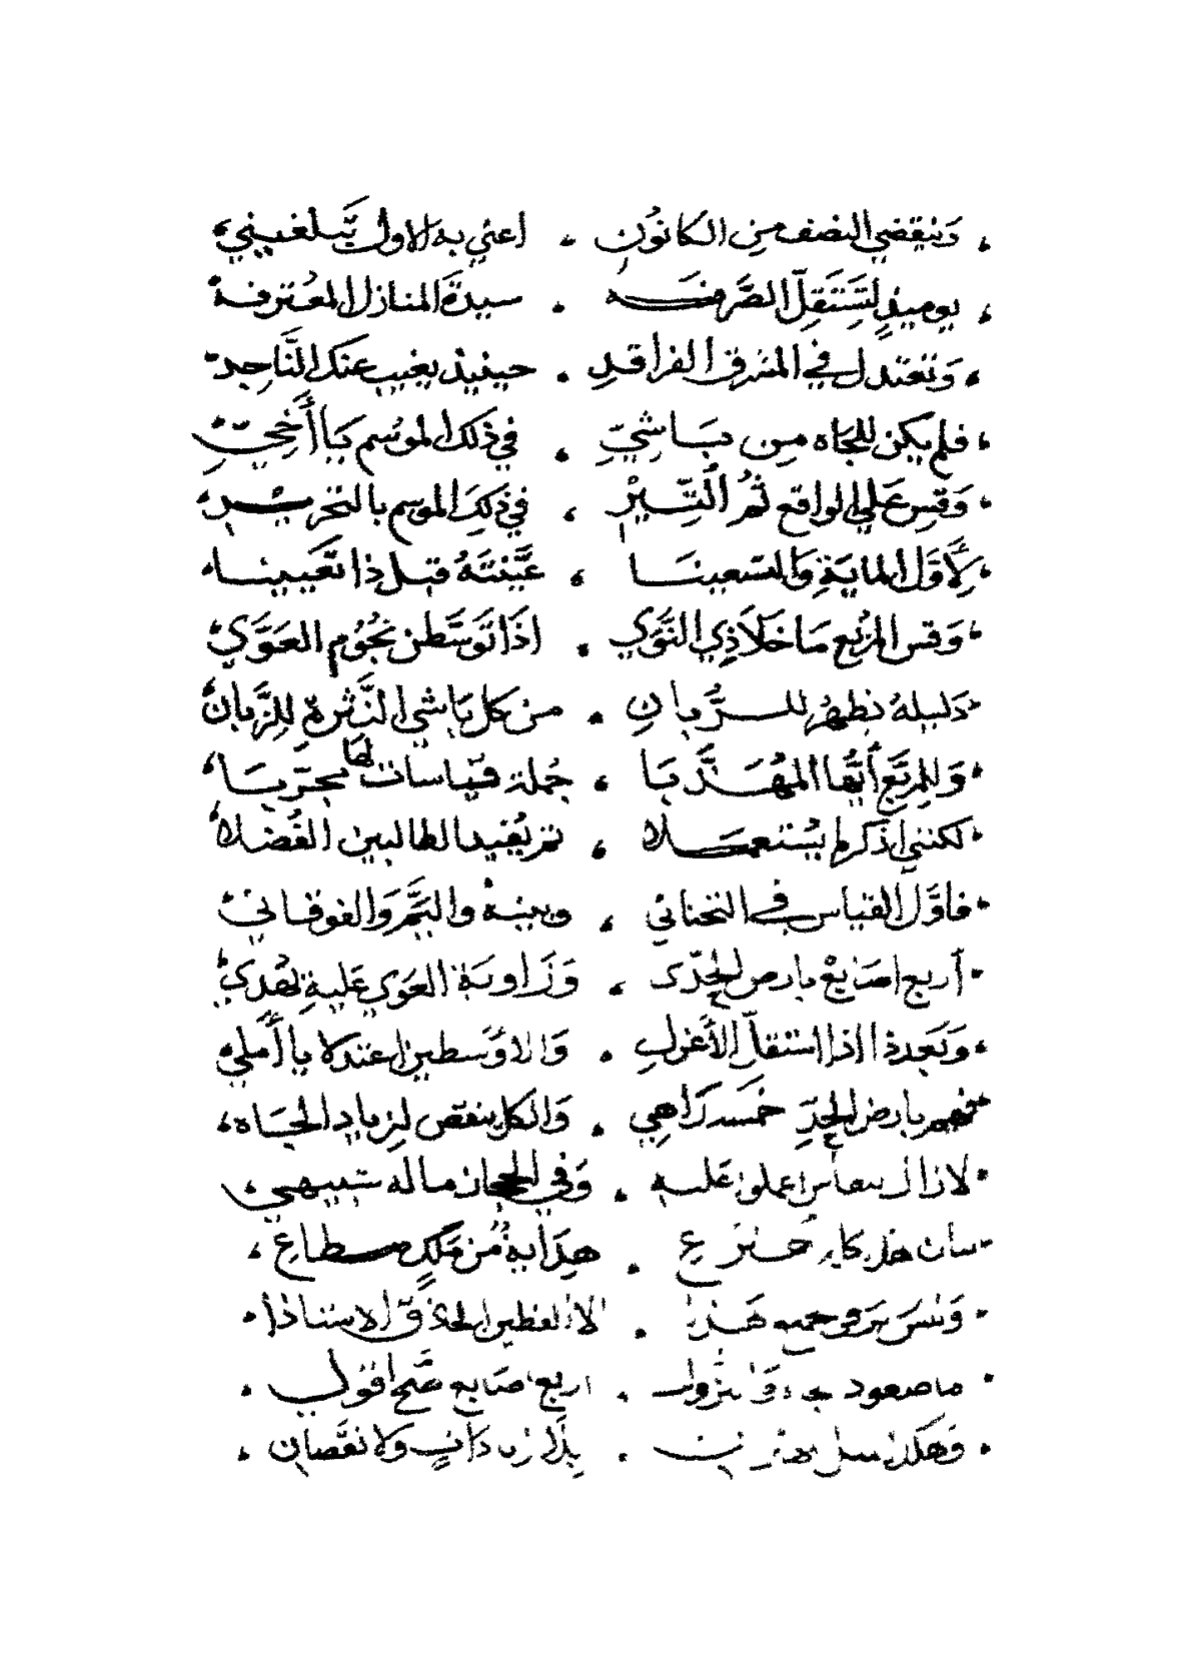 وينقضي النصف من الكانون ، اعني به الاول تبلغيني
يوميذٍ لتستقلّ الصَّرفه ، سيدة المنازل المعترفة
وتعتدل في المشرق الفراقدِ ، حينيذ يغيب عنك النَّاجد
فلم يكن للجاه من بَاشيّ ، في ذلك الموسم يَا أُخيّ
وَقس عَلي الواقع ثُم التّير ، في ذلكَ الموسم بالتحرير
لأوّل الماية والتسعينَا ، عَيَّنتهُ قبل ذا تَعيينا
وَقس المربع مَا خلا ذي النَّوَي ، اذَا توسَّطن نجُوم العَوَّي
دَليله يظهر للرُّبانِ ، من كل بَاشي النَّثرة للزّبان
وَللمربَّع أيّها المهَذَّبَا ، جُملة قيّاسات لها مجرّبَا
لكنني اذكر لم يُستعملا ، ثم يُفيد الطالبين الفُضلا
فاوّل القياس في التختاني ، وبينه والتيَّم وَالفوقاني
أربع اصَابعْ بارض الجدّى ، وَزاوية العَوي عليةِ تهدي
وَبَعده اذا استقلّ الأعزل ، وَالاوسطين عندكا يا أملي
فهم بارض الجدِّ خمسة زاهي ، وَالكل ينقص لزياد الجَاه
لا زال عَليه ، وَفي الحجاز ماله شبيهي
، هدايةٌ من مَلكٍ مطاع
هَذا ، الا الفطين الحذق الاستاذا
ما صعود ، اربع اصَابع صَّح اقول
وَهكذا ، وَلا نقصان